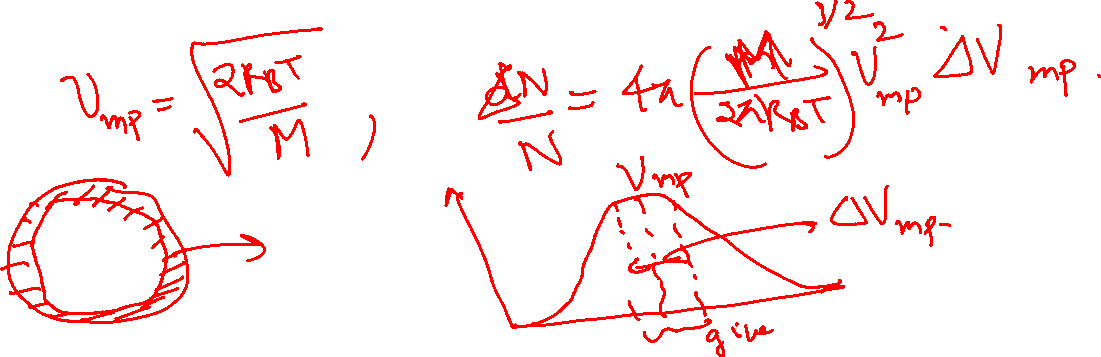 V_mp = √(2k_BT / M) , dN/N = 4π (M / 2πk_BT)^3/2 V_mp^2 ΔV_mp .
V_mp
ΔV_mp
give